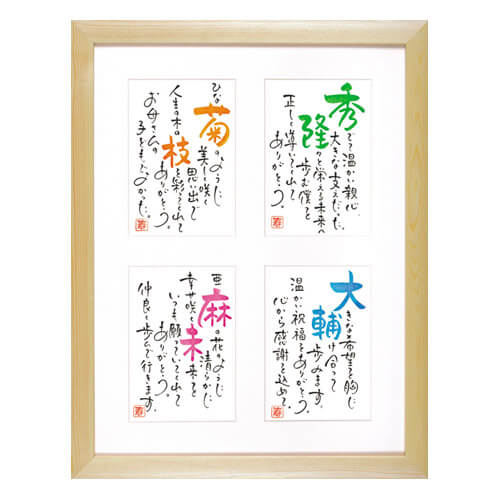 秀でて温かい親心
大きな支えだった。
隆々と栄える未来へ
歩む僕を
正しく導いてくれて
ありがとう。
ひな
菊のように
美しく咲く
思い出で
人生の木の枝を彩ってくれて
ありがとう。
お母さんの
子どもでよかった。
大きな希望を胸に
輔け合って
歩みます。
温かい祝福をありがとう。
心から感謝を込めて。
亜麻の花のように
清らかに
幸せ咲く未来を
いつも願っていてくれて
ありがとう。
仲良く歩んで行きます。